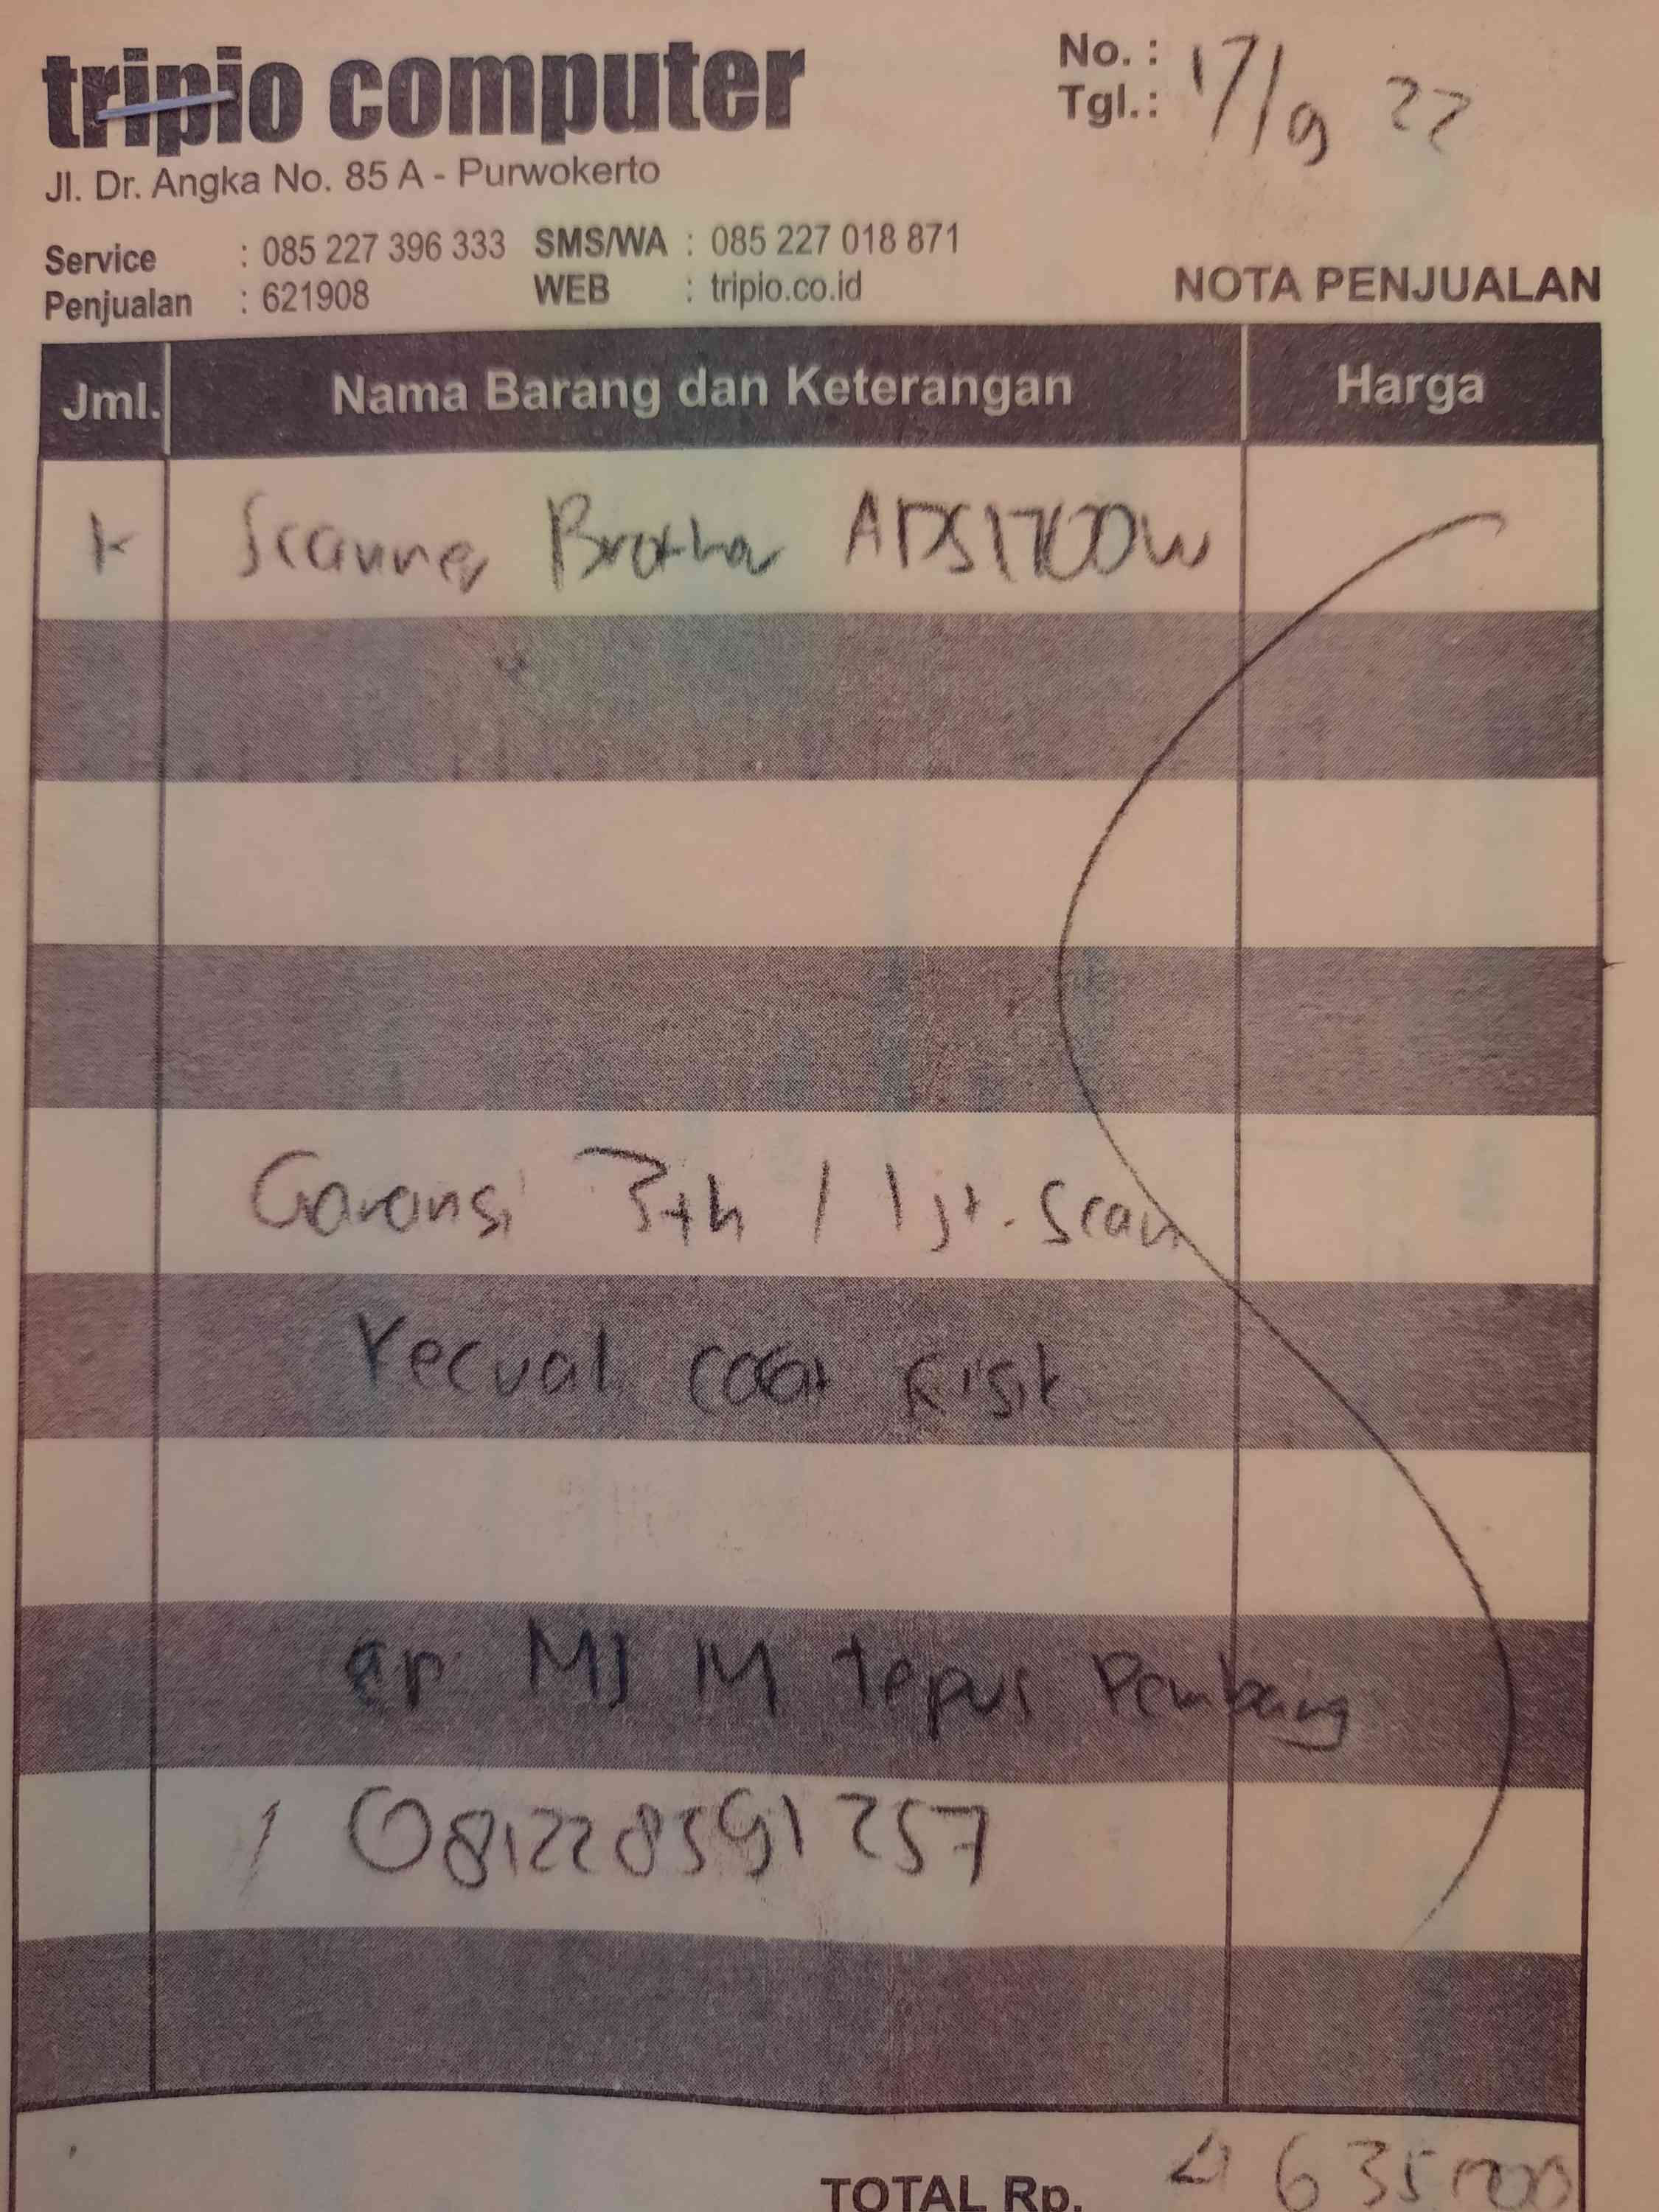 tripio computer
Jl. Dr. Angka No. 85 A - Purwokerto
No. :
Tgl. : 17/9 22
Service : 085 227 396 333 SMS/WA : 085 227 018 871
Penjualan : 621908 WEB : tripio.co.id
NOTA PENJUALAN
Jml. Nama Barang dan Keterangan Harga
1 Scanner Brother ADS1700W
Garansi 3th / 1 jt. Scan
Kecuali cacat fisik
MI M tepus Pembang
081228591257
TOTAL Rp. 4635000